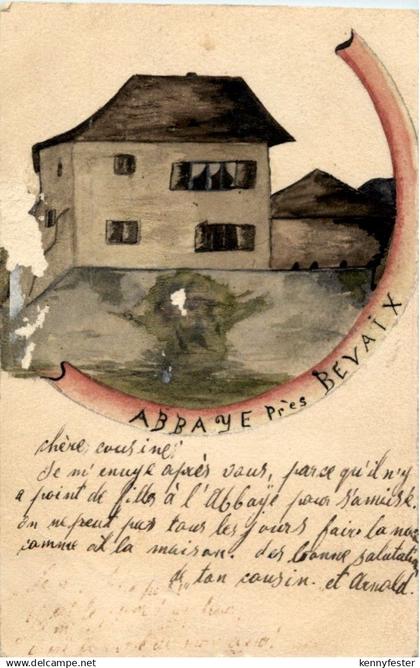 ABBAYE Près BÉVAIX
chère, cousine,
Je m'envuye après vous, parce qu'il n'y
a point de filles à l'Abbaye pour s'amuse.
on ne peut pas tous les jours faire la noce
comme à la maison. des bonne salutation
de ton cousin. et Arnold.
www.delcampe.net
kennyfester